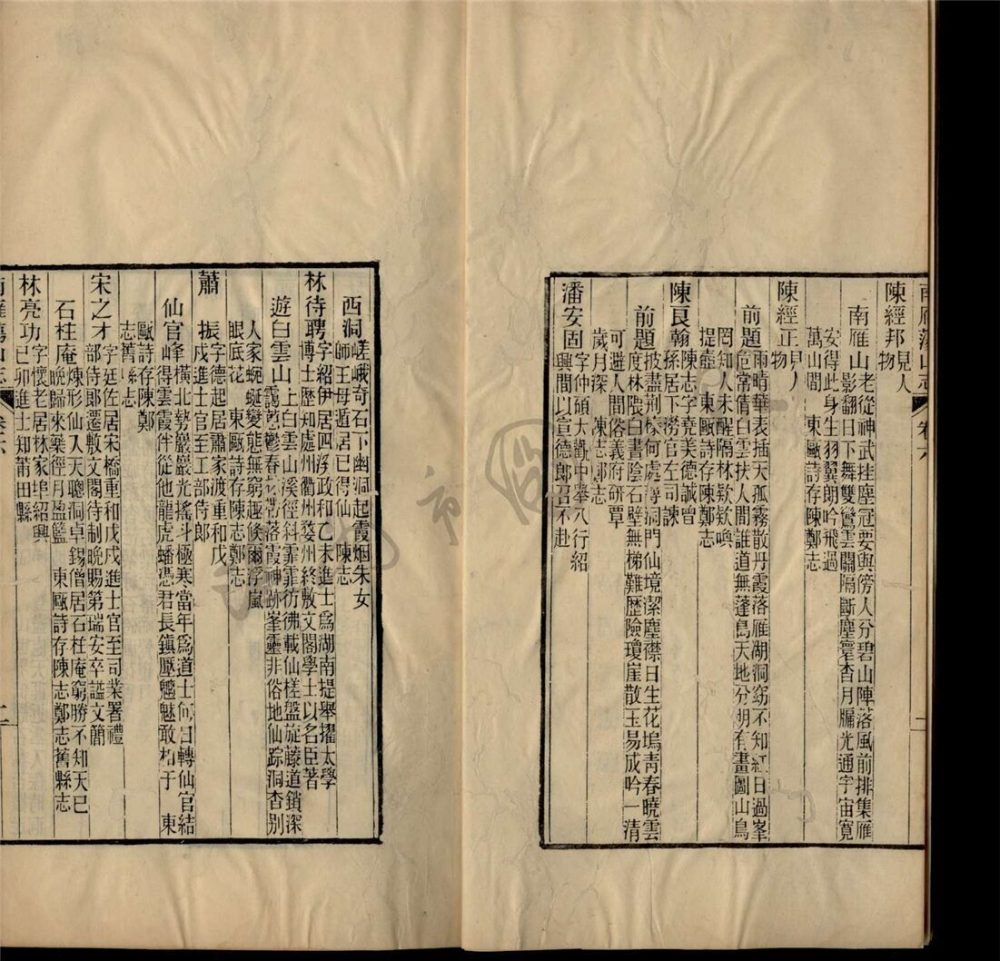 南雁蕩山志　卷六
陳經邦　見人物
南雁山　老從神武挂塵冠要與傍人分碧山陣落風前排集雁
影翻日下舞雙鸞雲關隔斷塵寰杳月牖光通宇宙寬
安得此身生羽翼朗吟飛過
萬山間　東甌詩存陳鄭志
陳經正　見人物
前題　雨晴華表插天孤霧散丹霞落雁湖洞窈不知紅日過峯
危常倩白雲扶人間誰道無蓬島天地分明有畫圖山鳥
罔知人未醒隔林欵欵喚
提壺　東甌詩存陳鄭志
陳良翰　陳志字堯美德誠曾
孫居下澇官左司諫
前題　披盡荆榛何處尋洞門仙境潔塵襟日生花塢青春曉雲
度林隈白晝陰石壁無梯難歷險瓊崖散玉易成吟一清
可避人間俗義府研覃
歲月深　陳志鄭志
潘安固　字仲碩大觀中舉八行紹
興間以宣德郎召不赴
西洞嵯峨奇石下幽洞起霞烟朱女
師王母遁居已得仙　陳志
林待聘　字紹伊居四浮政和乙未進士爲湖南提舉擢太學
博士歷知處州衢州婺州終敷文閣學士以名臣著
遊白雲山　上白雲山溪徑科霏霏彷彿載仙槎盤旋藤道鎖深
靄葱鬱春花帶落霞神跡峯靈非俗地仙踪洞杳别
人家蜿蜒變態無窮趣倏爾浮嵐
眼底花　東甌詩存陳志鄭志
蕭振　字德起居蕭家渡重和戊
戌進士官至工部侍郎
仙官峰　橫北勢巖巖光搖斗極寒當年爲道士何日轉仙官結
得雲霞伴從他龍虎蟠憑君長鎮壓魑魅敢相干　東
甌詩存陳鄭
志舊縣志
宋之才　字廷佐居宋橋重和戊戌進士官至司業署禮
部侍郎遷敷文閣待制晩賜第瑞安卒諡文簡
石柱庵　煉形仙人天聰洞卓錫僧居石柱庵窮勝不知天已
晩歸來藥徑月盈籃　東甌詩存陳志鄭志舊縣志
林亮功　字懷老居林家埠紹興
己卯進士知莆田縣
南雁蕩山志　卷六　二